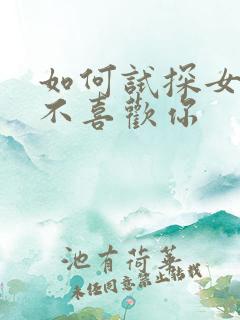 如何試探女
不喜歡你
池有荷華
未经同意禁止转载